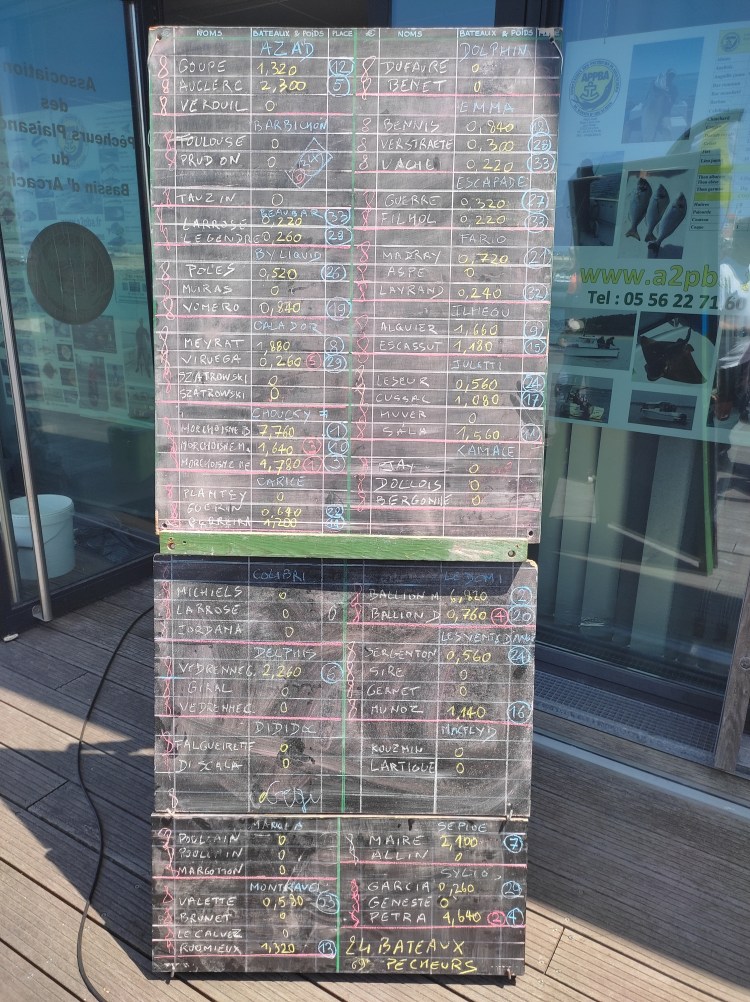 NOMS BATEAUX & POIDS PLACE
AZAD
8 GOUPE 1,320 12
8 AUCLERC 2,300 5
8 VERDUIL 0
BARBICHON
TOULOUSE 0
PRUDON 0
TAUZIN 0
BEAUBAR
LARROSE 0,220 33
LEGENDRE 0,260 28
BY LIQUID
POLES 0,520 26
MUIRAS 0
VOMERO 0,840 19
CALADOR
MEYRAT 1,880 8
VIRUEGA 0,260 5 29
SZATROWSKI 0
SZATROWSKI 0
CHOUCKY
MORCHOISNE B 7,760 1
MORCHOISNE M. 1,640 3 10
MORCHOISNE 4,780 1 3
CARICE
PLANTEY 0
GUERIN 0,640 22
PEREIRA 1,200 14
€ NOMS BATEAUX & POIDS PLACE
DOLPHIN
8 DUFAURE 0
8 BENET 0
EMMA
8 BENNIS 0,840 19
8 VERSTRAETE 0,300 28
8 VACHE 0,220 33
ESCAPADE
GUERRE 0,320 27
FILHOL 0,220 33
FARIO
MADRAY 0,720 21
ASPE 0
LAYRAND 0,240 32
ILHEOU
ALGUIER 1,660 9
ESCASSUT 1,180 15
JULATIL
LESEUR 0,560 24
CUSSAC 1,080 17
HUVER 0
SALA 1,560 11
KAMALE
JAY 0
DOLLOIS 0
BERGONIE 0
COLIBRI
MICHIELS 0
LABROSE 0
JORDANA 0
DELPHIS
VEDRENNE G. 2,260 6
GIRAL 0
VEDRENNE C. 0
DIDIDA
FALGUEIRETTE 0
DI SCALA 0
LE DEMI
BALLION M 6,820 2
BALLION D 0,760 4 20
LES VENTS D'ANGES
SERGENTON 0,560 24
SIRE 0
GERNET 0
MUNOZ 1,140 16
MACFLYD
KOUZMIN 0
LARTIGUE 0
POULMAIN 0
POULMAIN 0
MARGOTTON 0
MONTRAVEL
VALETTE 0,580 23
BRUNET 0
LE CALVEZ 0
ROUMIEUX 1,320 13
SEPIOE
MAIRE 2,100 7
ALLIN 0
SYLIO
GARCIA 0,260 29
GENESTE 0
PETRA 4,640 2 4
24 BATEAUX
69 PECHEURS
Association
des
Pêcheurs Plaisanciers
du
Bassin d'Arcachon
APPBA
www.a2pb
Tel : 05 56 22 71 60